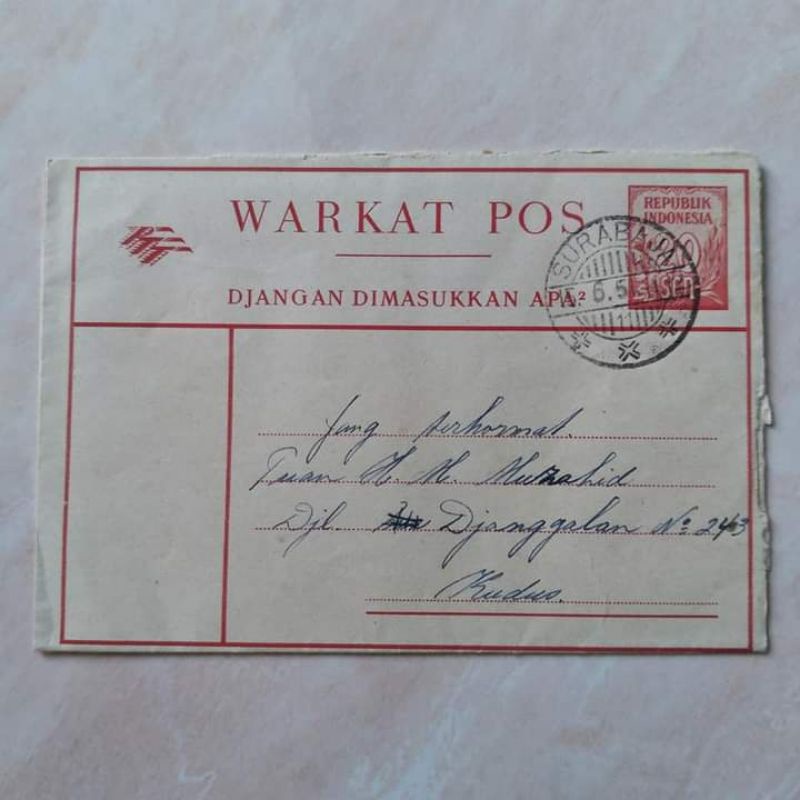 WARKAT POS
REPUBLIK
INDONESIA
SURABAJA
DJANGAN DIMASUKKAN APA²
SEN
Jang terhormat.
Tuan H. M. Muzahid
Djl. Djanggalan No 243
Kudus.